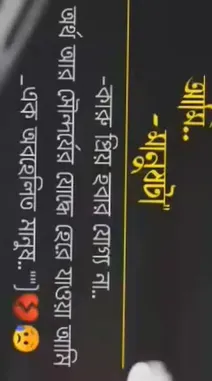 আমি..
-মানুষটা"
-কারু প্রিয় হবার যোগ্য না..
অর্থ আর সৌন্দর্যের যোদ্ধে হেরে যাওয়া আমি
_এক অবহেলিত মানুষ.."")💔😓